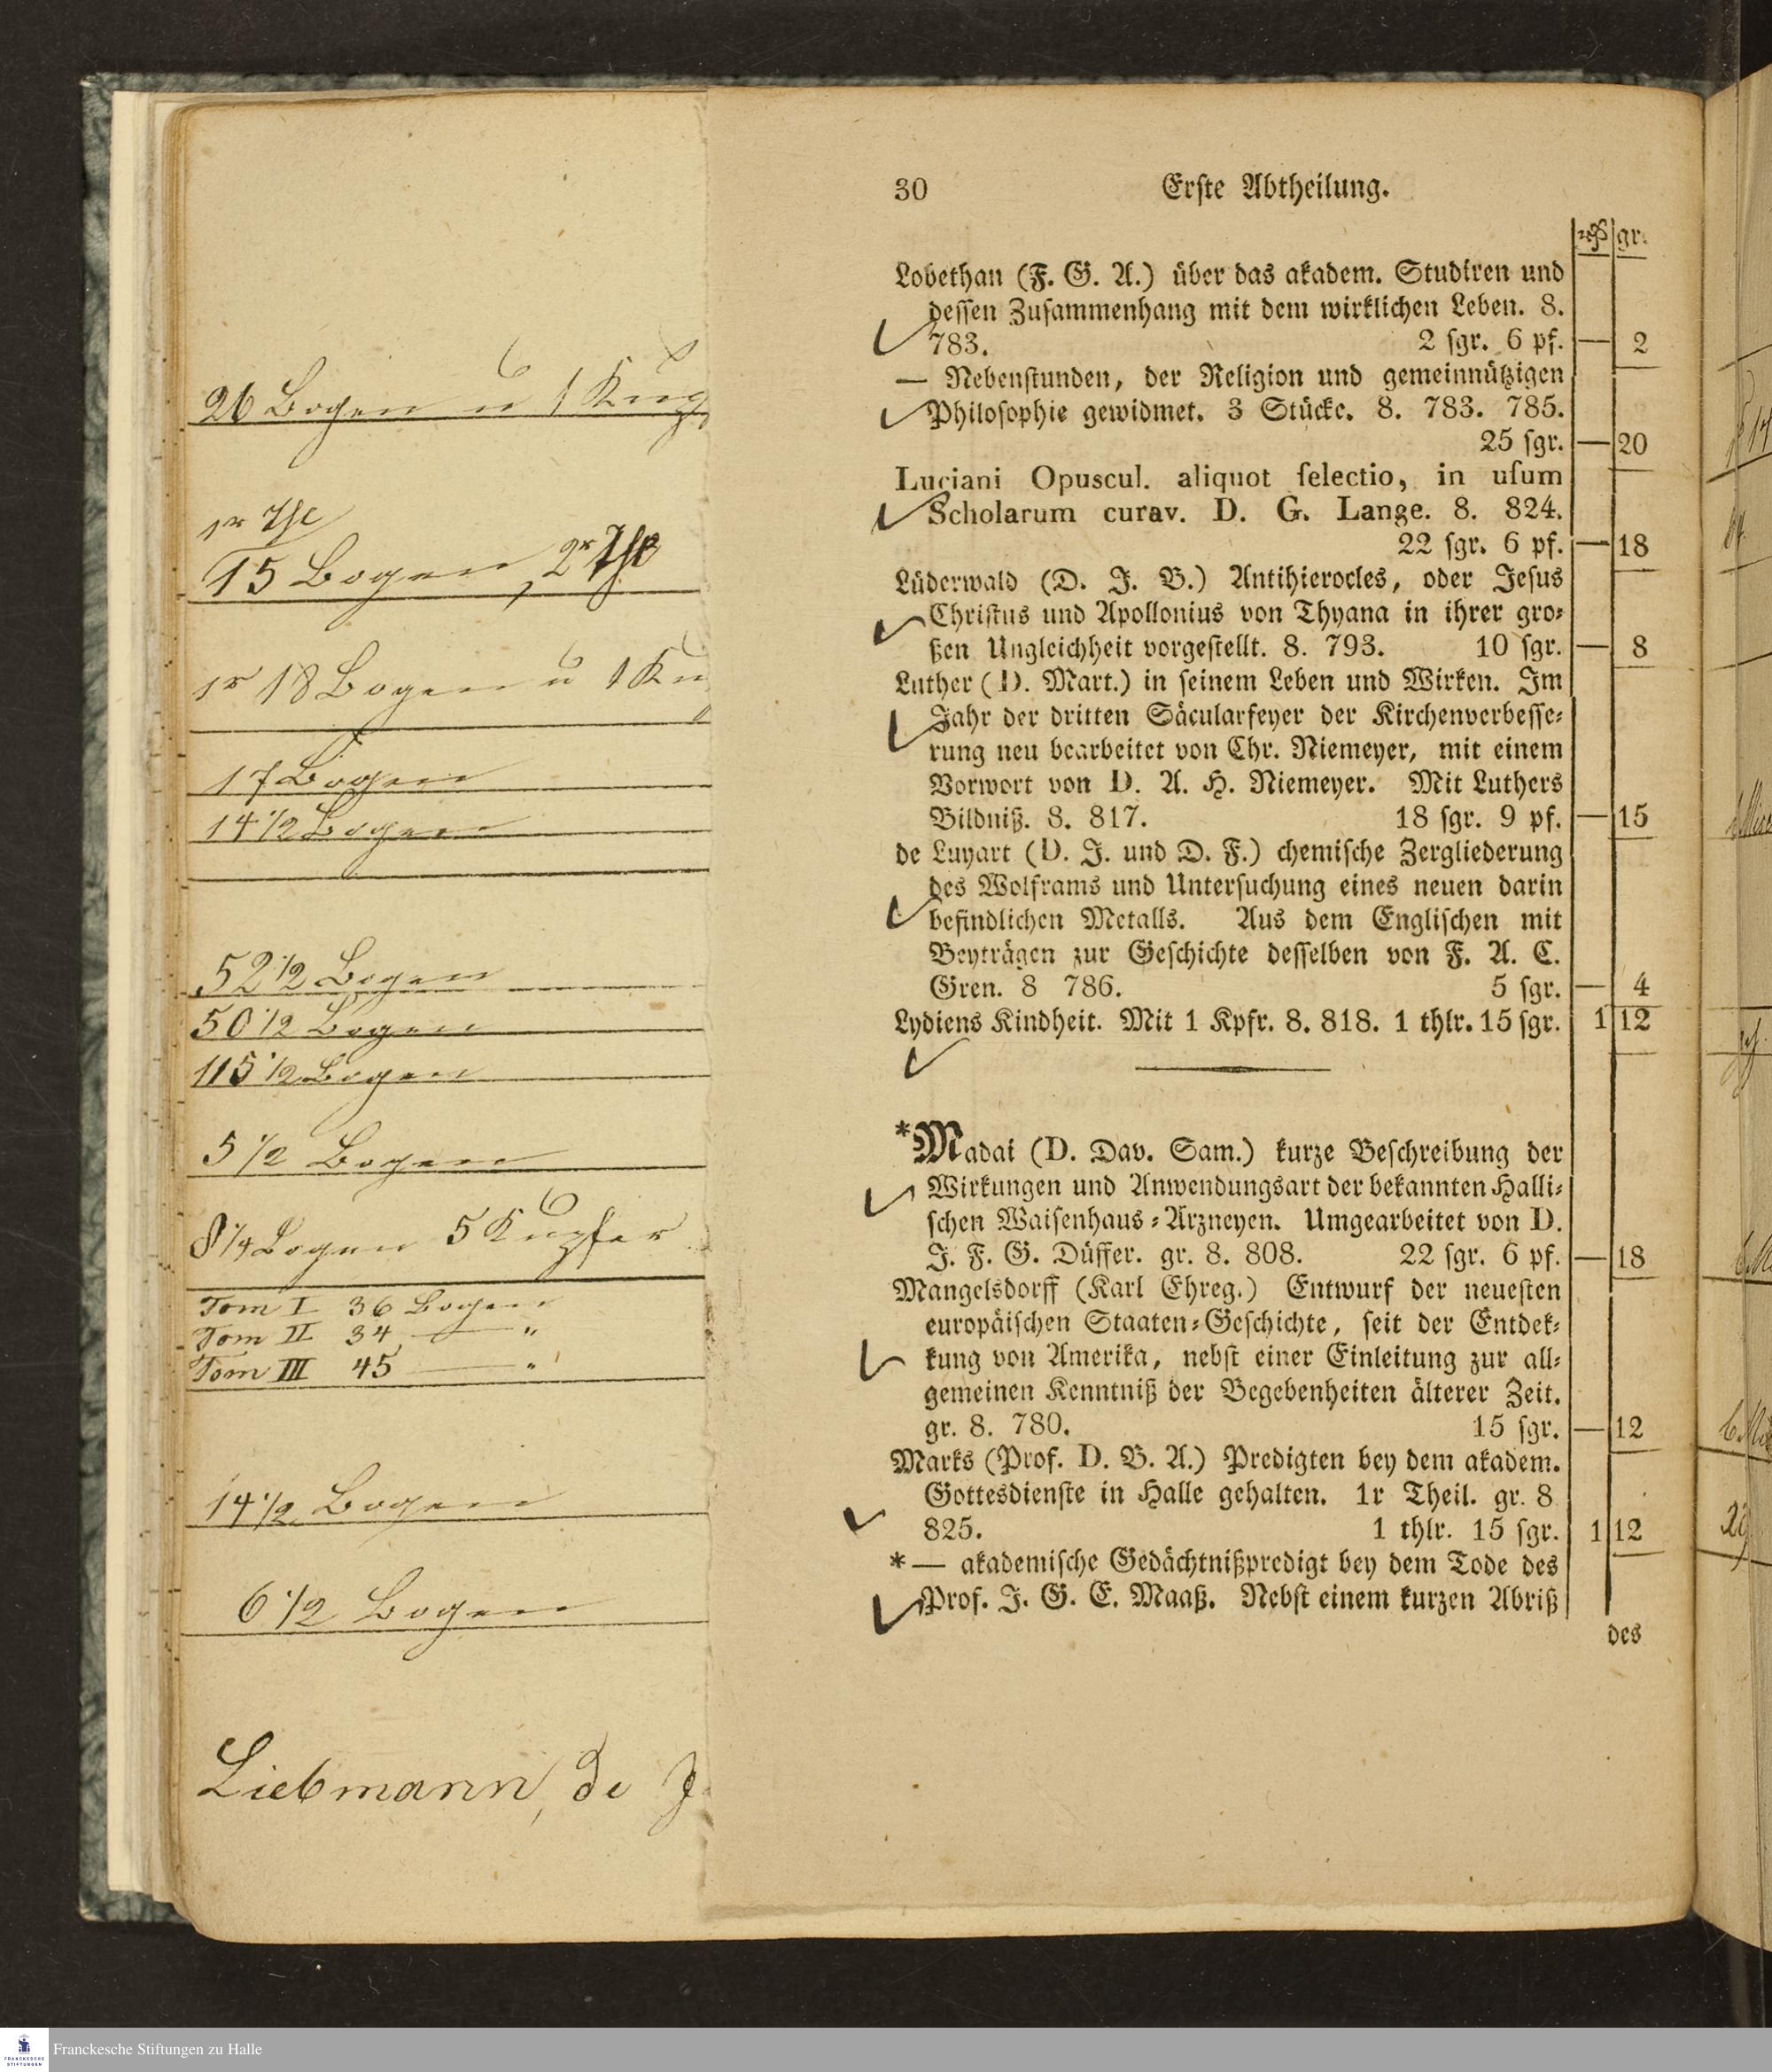 26 Bogen u 1 Kup
1r Thl
15 Bogen, 2r Thl
1r 18 Bogen u 1 Ku
17 Bogen
14 1/2 Bogen
52 1/2 Bogen
50 1/2 Bogen
115 1/2 Bogen
5 1/2 Bogen
8 1/4 Bogen 5 Kupfer
Tom I 36 Bogen
Tom II 34 — "
Tom III 45 — "
14 1/2 Bogen
6 1/2 Bogen
Liebmann, de J
30 Erſte Abtheilung.
rthlr gr.
Lobethan (F. G. A.) über das akadem. Studiren und
deſſen Zuſammenhang mit dem wirklichen Leben. 8.
783. 2 ſgr. 6 pf. — 2
— Nebenſtunden, der Religion und gemeinnützigen
Philoſophie gewidmet. 3 Stücke. 8. 783. 785.
25 ſgr. — 20
Luciani Opuscul. aliquot ſelectio, in uſum
Scholarum curav. D. G. Lange. 8. 824.
22 ſgr. 6 pf. — 18
Lüderwald (D. J. B.) Antihierocles, oder Jeſus
Chriſtus und Apollonius von Thyana in ihrer gro⸗
ßen Ungleichheit vorgeſtellt. 8. 793. 10 ſgr. — 8
Luther (D. Mart.) in ſeinem Leben und Wirken. Im
Jahr der dritten Säcularfeyer der Kirchenverbeſſe⸗
rung neu bearbeitet von Chr. Niemeyer, mit einem
Vorwort von D. A. H. Niemeyer. Mit Luthers
Bildniß. 8. 817. 18 ſgr. 9 pf. — 15
de Luyart (D. J. und D. F.) chemiſche Zergliederung
des Wolframs und Unterſuchung eines neuen darin
befindlichen Metalls. Aus dem Engliſchen mit
Beyträgen zur Geſchichte deſſelben von F. A. C.
Gren. 8 786. 5 ſgr. — 4
Lydiens Kindheit. Mit 1 Kpfr. 8. 818. 1 thlr. 15 ſgr. 1 12
*Madai (D. Dav. Sam.) kurze Beſchreibung der
Wirkungen und Anwendungsart der bekannten Halli⸗
ſchen Waiſenhaus⸗Arzneyen. Umgearbeitet von D.
J. F. G. Düffer. gr. 8. 808. 22 ſgr. 6 pf. — 18
Mangelsdorff (Karl Ehreg.) Entwurf der neueſten
europäiſchen Staaten⸗Geſchichte, ſeit der Entdek⸗
kung von Amerika, nebſt einer Einleitung zur all⸗
gemeinen Kenntniß der Begebenheiten älterer Zeit.
gr. 8. 780. 15 ſgr. — 12
Marks (Prof. D. B. A.) Predigten bey dem akadem.
Gottesdienſte in Halle gehalten. 1r Theil. gr. 8
825. 1 thlr. 15 ſgr. 1 12
*— akademiſche Gedächtnißpredigt bey dem Tode des
Prof. J. G. E. Maaß. Nebſt einem kurzen Abriß
des
Franckesche Stiftungen zu Halle